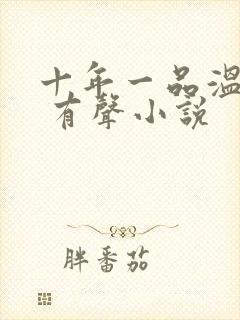 十年一品溫
有聲小説
胖番茄